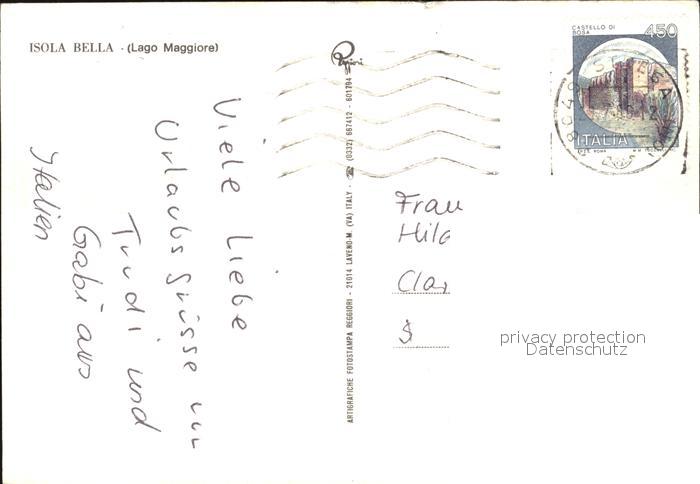 ISOLA BELLA - (Lago Maggiore)
CASTELLO DI
BOSA
450
ITALIA
ARTIGRAFICHE FOTOSTAMPA REGGIORI - 21014 LAVENO-M. (VA) ITALY - (0332) 667412 - 601794
Viele Liebe
Urlaubsgrüsse
Trudi und
Gabi aus
Italien
Frau
Hilo
Cla
privacy protection
Datenschutz